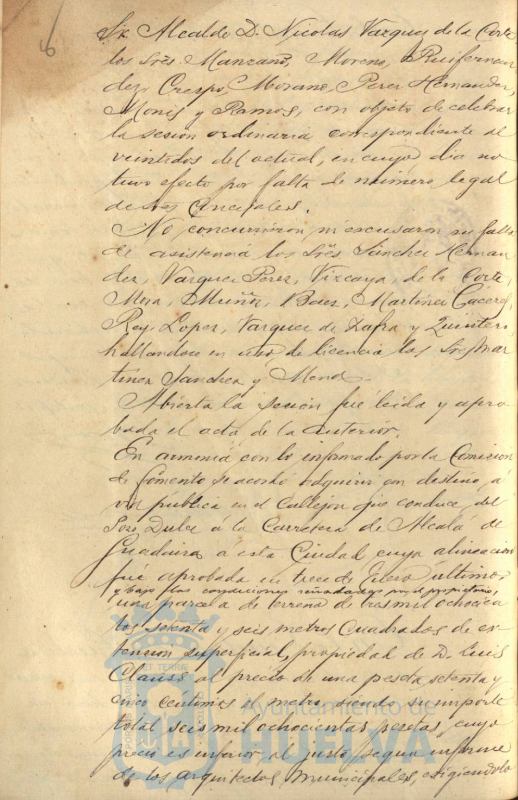 6
Sr. Alcalde D. Nicolas Vazquez de la Corte
los Sres. Manzano, Moreno, Ruifernan
dez, Crespo, Morano, Perez Hernandez,
Monis y Ramos, con objeto de celebrar
la sesion ordinaria correspondiente al
veintidos del actual, en cuyo dia no
tuvo efecto por falta de número legal
de Sres. Concejales.
No concurrieron ni excusaron su falta
de asistencia los Sres. Sanchez Hernan
dez, Vazquez Perez, Vizcaya, de la Corte,
Mora, Muñoz, Baez, Martinez Caceres,
Rey, Lopez, Vazquez de Zafra y Quintero
hallandose en uso de licencia los Sres. Mar
tinez Sanchez y Mena.
Abierta la sesion fué leida y apro
bada el acta de la anterior.
En armonia con lo informado por la Comision
de fomento se acordó adquirir con destino á
via pública en el Callejon que conduce del
Pozo Dulce a la Carretera de Alcalá de
Guadaira á esta Ciudad cuya alineacion
fué aprobada en trece de Enero último,
y bajo las condiciones por el propietario,
una parcela de terreno de tres mil ochocien
tos setenta y seis metros cuadrados de ex
tension superficial, propiedad de D. Luis
Clauss al precio de una peseta setenta y
cinco centimos el metro, siendo su importe
total seis mil ochocientas pesetas, cuyo
precio es inferior al justo, segun informe
de los arquitectos municipales, exigiendolo
Ayuntamiento de
HUELVA